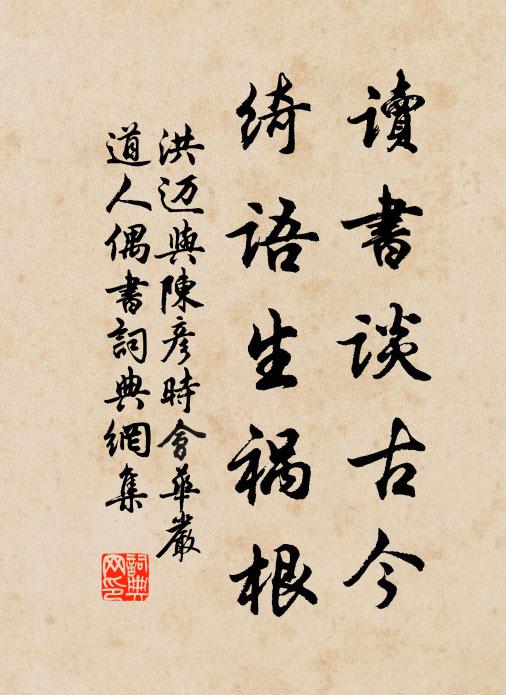 讀書談古今
綺語生禍根
洪迈與陳彦時會華嚴
道人偶書詞典網集
詞典
网印